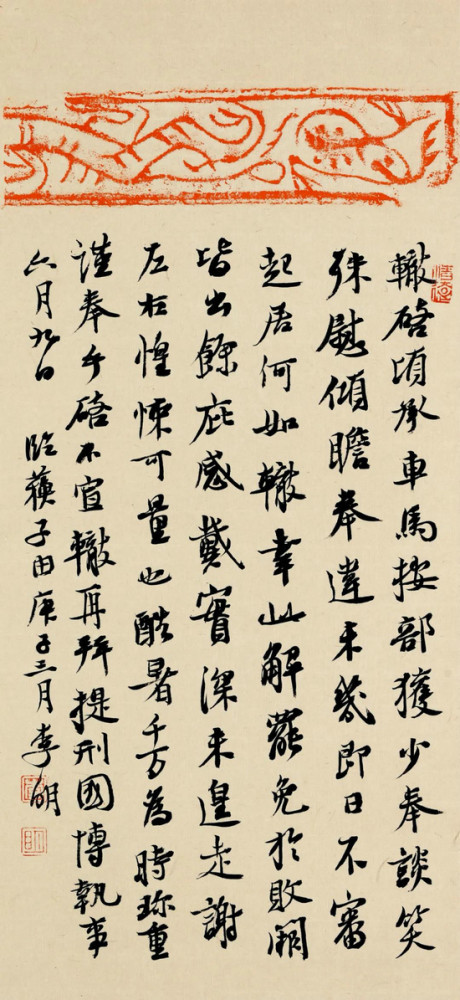 轍啓頃承車馬按部獲少奉談笑
殊慰傾瞻奉違未幾即日不審
起居何如轍幸此解罷免於敗闕
皆出餘庇感戴實深未遑走謝
左右惶悚可量也酷暑千万為時珎重
謹奉手啓不宣轍再拜提刑國博執事
六月九日 臨蘇子由庚子三月李明